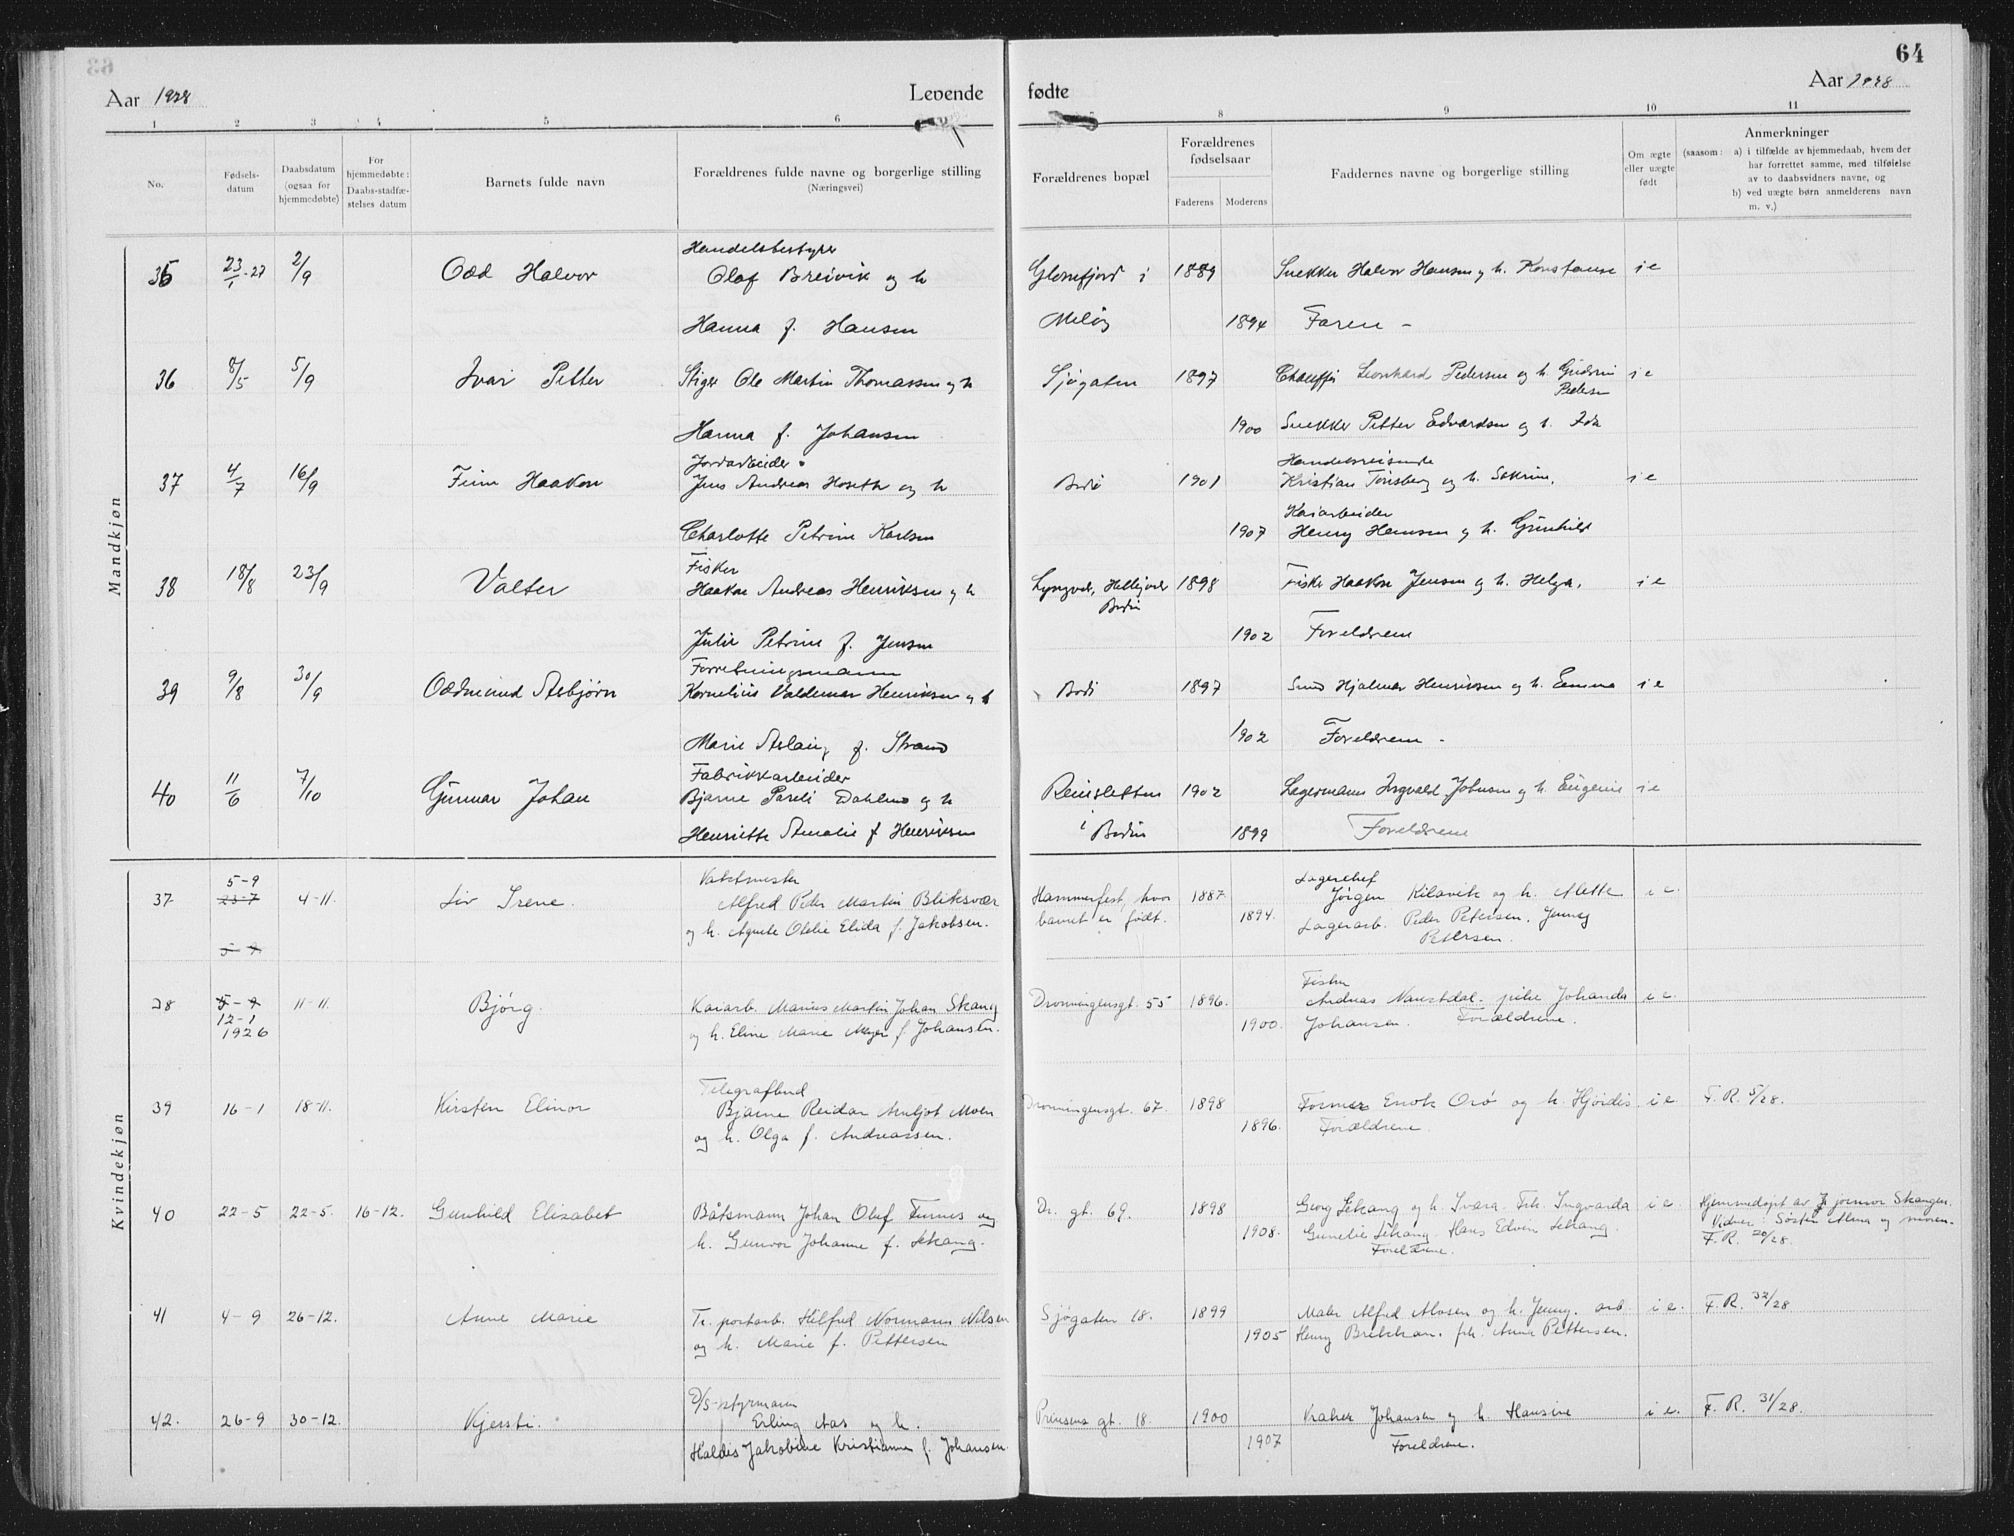 64
Aar 1928
Levende
fødte
Aar 1928
1 2 3 4 5 6 8 9 10 11
No.
Fødsels-
datum
Daabsdatum
(ogsaa for
hjemmedøbte)
For
hjemmedøbte:
Daabs-stadfæ-
stelses datum
Barnets fulde navn
Forældrenes fulde navne og borgerlige stilling
(Næringsvei)
Forældrenes bopæl
Forældrenes
fødselsaar
Faderens Moderens
Faddernes navne og borgerlige stilling
Om ægte
eller uægte
født
Anmerkninger
(saasom: a) i tilfælde av hjemmedaab, hvem der
har forrettet samme, med tilføielse
av to daabsvidners navne, og
b) ved uægte børn anmelderens navn
m. v.)
Mandkjøn
Handelsbestyrer
35 23/1-27 2/9 Odd Halvor Olaf Breivik og h Glomfjord i 1889 Snekker Halvor Hansen og h. Konstanse i e
Hanna f. Hansen Meløy 1894 Faren -
36 8/5 5/9 Ivar Petter Stiger Ole Martin Thomassen og h Sjøgaten 1897 Chauffør Leonhard Pedersen og h. Gudrun i e
Pedersen
Hanna f. Johansen 1900 Snekker Petter Edvardsen og h. Ida
Jordarbeider Handelsreisende
37 4/7 16/9 Finn Haakon Jens Andreas Hoseth og h Bodø 1901 Kristian Tønsberg og h. i e
Kaiarbeider
Charlotte Petrine Karlsen 1907 Henry Hansen og h. Gunhild
Fisker
38 18/8 23/9 Valter Haakon Andreas Henriksen og h 1898 Fisker Haakon Jensen og h. Helga. i e
Bodin
Julie Petrine f. Jensen 1902 Foreldrene
Forretningsmann
39 9/8 30/9 Oddmund Asbjørn Kornelius Valdemar Henriksen og h Bodø 1897 Smed Hjalmar Henriksen og h. Emma i e
Marie Aslaug f. Strand 1902 Foreldrene -
Fabrikkarbeider
40 11/6 7/10 Gunnar Johan Bjarne Pareli Dahlmo og h Reinsletten 1902 Lagermann Ingvald Johnsen og h. Eugenie i e
Henriette Amalie f Henriksen i Bodin 1899 Foreldrene
Kvindekjøn
5-9 Vaktmester Lagerchef
37 23-7 4-11. Liv Irene. Alfred Peder Martin Bliksvær Hammerfest, hvor 1887 Jørgen Kilavik og h. Alette i e.
og h. Agnete Otelie Elida f. Jakobsen. barnet er født. 1894. Lagerarb. Peder Petersen. Jenny
5-9 Petersen.
Fisker
28 5-9 11-11. Bjørg. Kaiarb. Marius Martin Johan Skang Dronningensgt. 55 1896. Andreas Naustdal. pike Johanda i e.
12-1 og h. Eline Marie Meyer f. Johansen. 1900. Johansen. Forældrene.
1926
Telegrafbud
39 16-1 18-11. Kirsten Elinor Bjarne Reidar Arnljot Moen Dronningensgt. 67. 1898 Former Enok Orø og h. Hjørdis i e F. R. 5/28.
og h. Olga f. Andreassen. 1896. Forældrene.
40 22-5 22-5. 16-12. Gunhild Elisabet Båtsmann Johan Oluf Furnes og Dr. gt. 69. 1898 Georg Sekang og h. Ivara. Frk. Ingvarda i e. Hjemmedøpt av Jordmor Skangen.
h. Gunvor Johanne f. Sekang. 1908. Gunelie Sekang. Hans Edvin Sekang. Vidner: Søster Alma og moren.
Foreldrene. F. R. 20/28.
41 4-9 26-12. Anne Marie Tr. portarb. Hilfred Normann Nilsen Sjøgaten 18. 1899 Maler Alfred Mosen og h. Jenny. arb. i e. F. R. 32/28
og h. Marie f. Pettersen 1905 Henry Brekkan. frk. Anna Pettersen.
D/S-styrmann
42. 26-9 30-12. Kjersti. Erling Aas og h. Prinsens gt. 18. 1900 Johansen og h. Hansine i e. F. R. 31/28.
Haldis Jakobine Kristianne f. Johansen. 1907 Foreldrene.